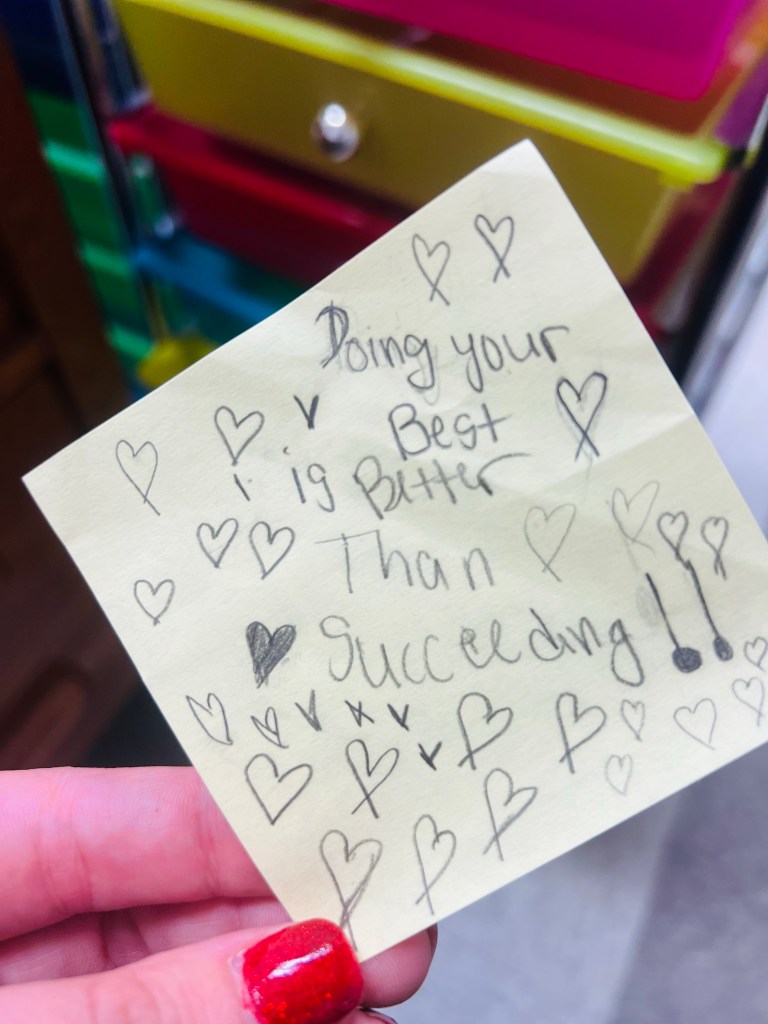 Doing your
Best
is Better
Than
Succeeding!!